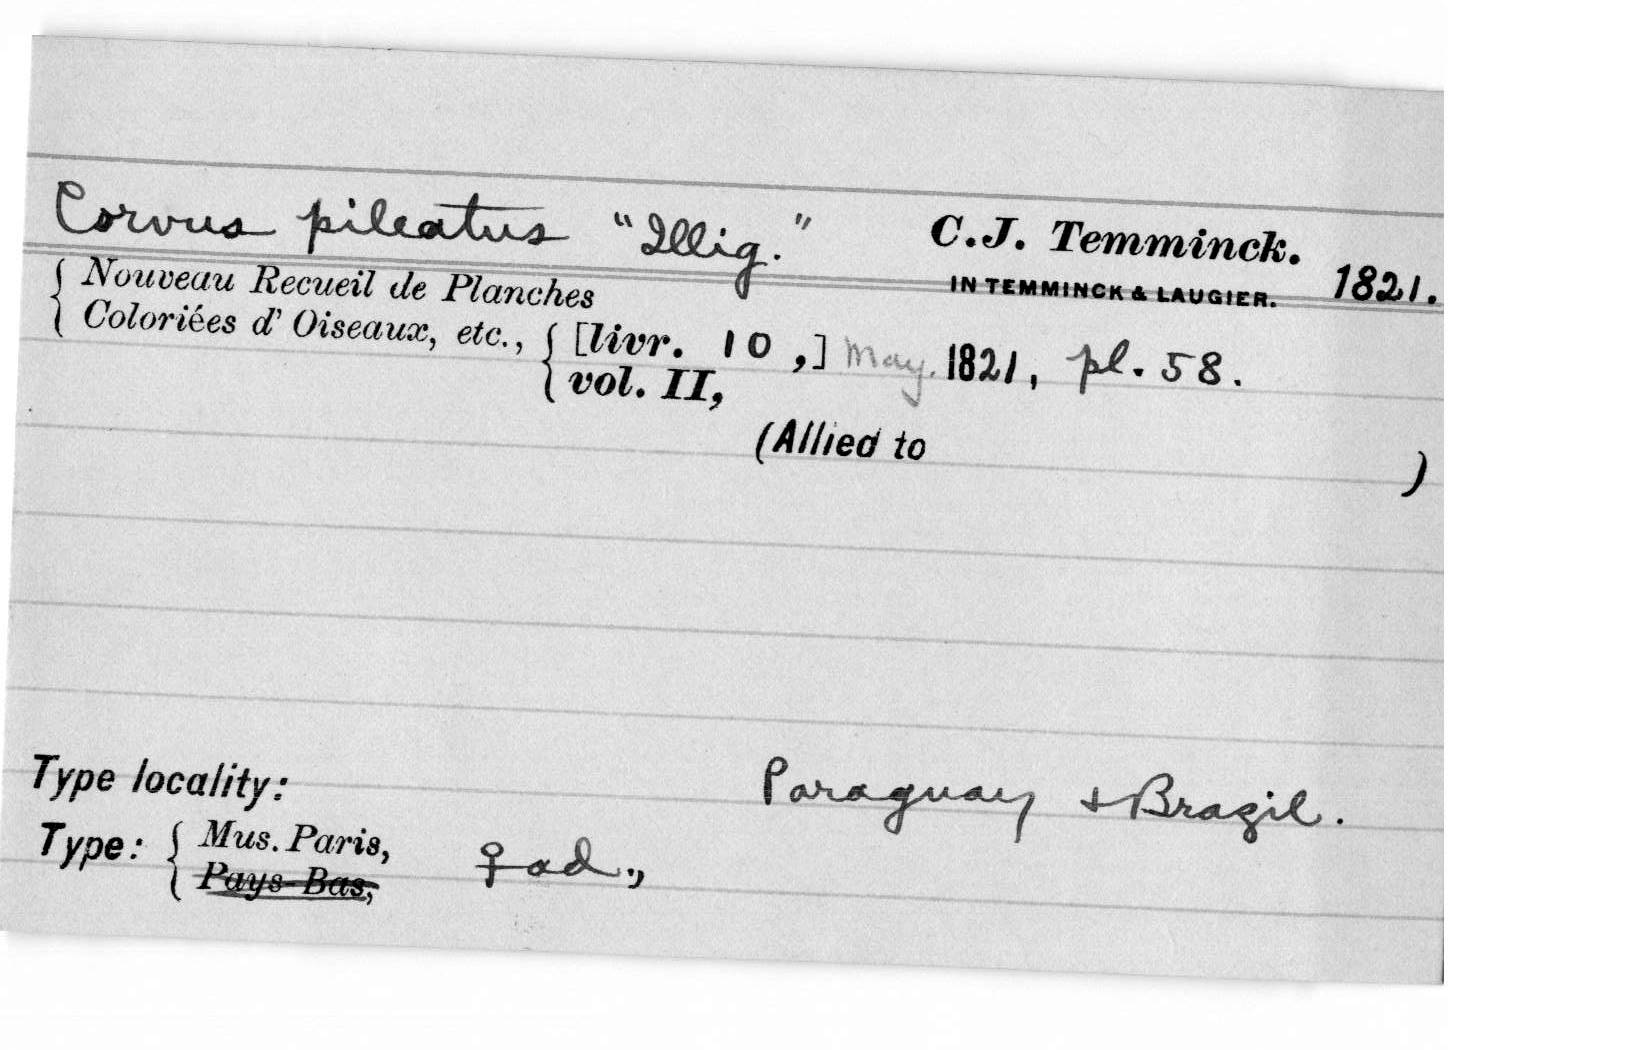 Corvus pileatus "Illig." C.J. Temminck.
IN TEMMINCK & LAUGIER. 1821.
Nouveau Recueil de Planches
Coloriées d' Oiseaux, etc., [livr. 10 ,] May. 1821, pl. 58.
vol. II,
(Allied to )
Type locality: Paraguay & Brazil.
Type: Mus. Paris, ♀ ad.,
Pays-Bas,